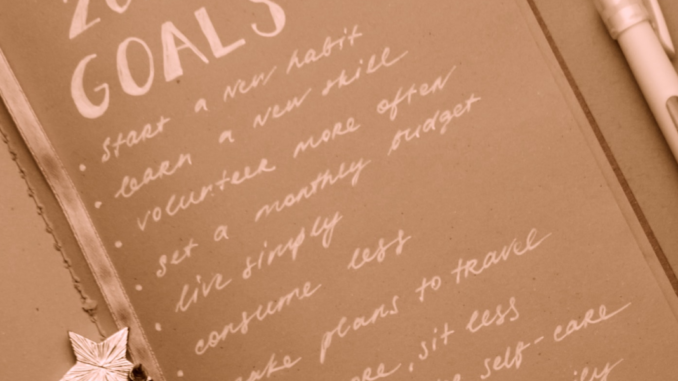 20
GOALS
• start a new habit
• learn a new skill
• volunteer more often
• set a monthly budget
• live simply
• consume less
• make plans to travel
sit less
self-care